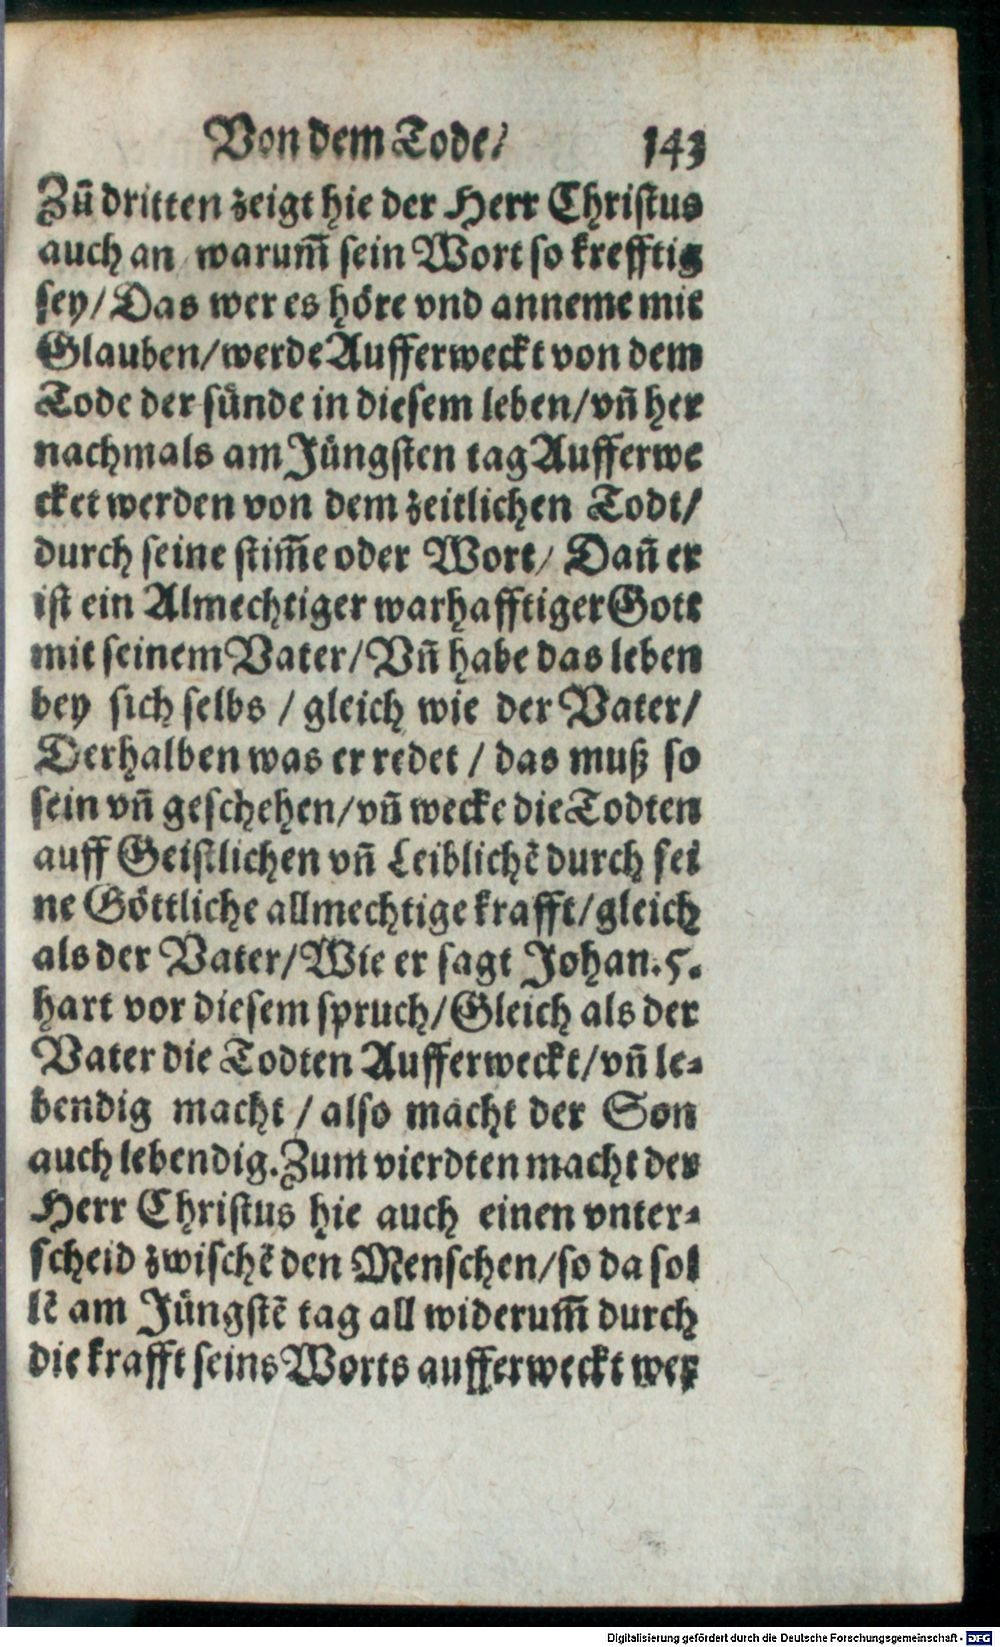 Von dem Tode/ 143
Zũ dritten zeigt hie der Herr Christus
auch an / warum̃ sein Wort so krefftig
sey/ Das wer es höre vnd anneme mit
Glauben/werde Aufferweckt von dem
Tode der sünde in diesem leben/vñ her
nachmals am Jüngsten tag Aufferwe
cket werden von dem zeitlichen Todt/
durch seine stim̃e oder Wort/ Dañ er
ist ein Almechtiger warhafftiger Gott
mit seinem Vater/Vñ habe das leben
bey sich selbs / gleich wie der Vater/
Derhalben was er redet / das muß so
sein vñ geschehen/vñ wecke die Todten
auff Geistlichen vñ Leiblichẽ durch sei
ne Göttliche allmechtige krafft/gleich
als der Vater/Wie er sagt Johan.5.
hart vor diesem spruch/Gleich als der
Vater die Todten Aufferweckt/vñ le-
bendig macht / also macht der Son
auch lebendig. Zum vierdten macht der
Herr Christus hie auch einen vnter-
scheid zwischẽ den Menschen/so da sol
lẽ am Jüngstẽ tag all widerum̃ durch
die krafft seins Worts aufferweckt wer
Digitalisierung gefördert durch die Deutsche Forschungsgemeinschaft - DFG